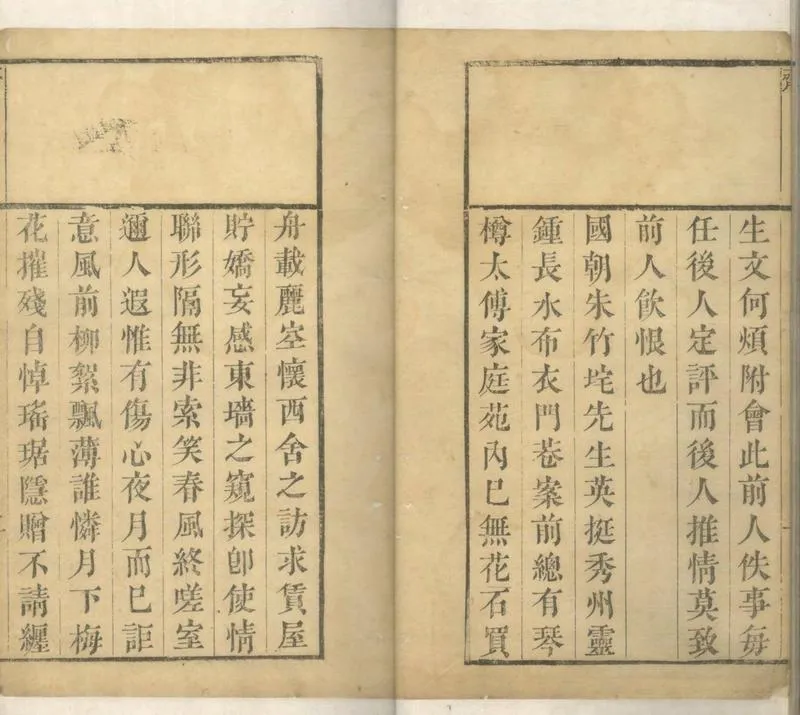 生文何煩附會此前人佚事每
任後人定評而後人推情莫致
前人飲恨也
國朝朱竹垞先生英挺秀州靈
鍾長水布衣門巷案前總有琴
樽太傅家庭苑內已無花石買
舟載麗空懷西舍之訪求賃屋
貯嬌妄感東墻之窺探卽使情
聯形隔無非索笑春風終嗟室
邇人遐惟有傷心夜月而已詎
意風前柳絮飄薄誰憐月下梅
花摧殘自悼瑤琚隱贈不請纏